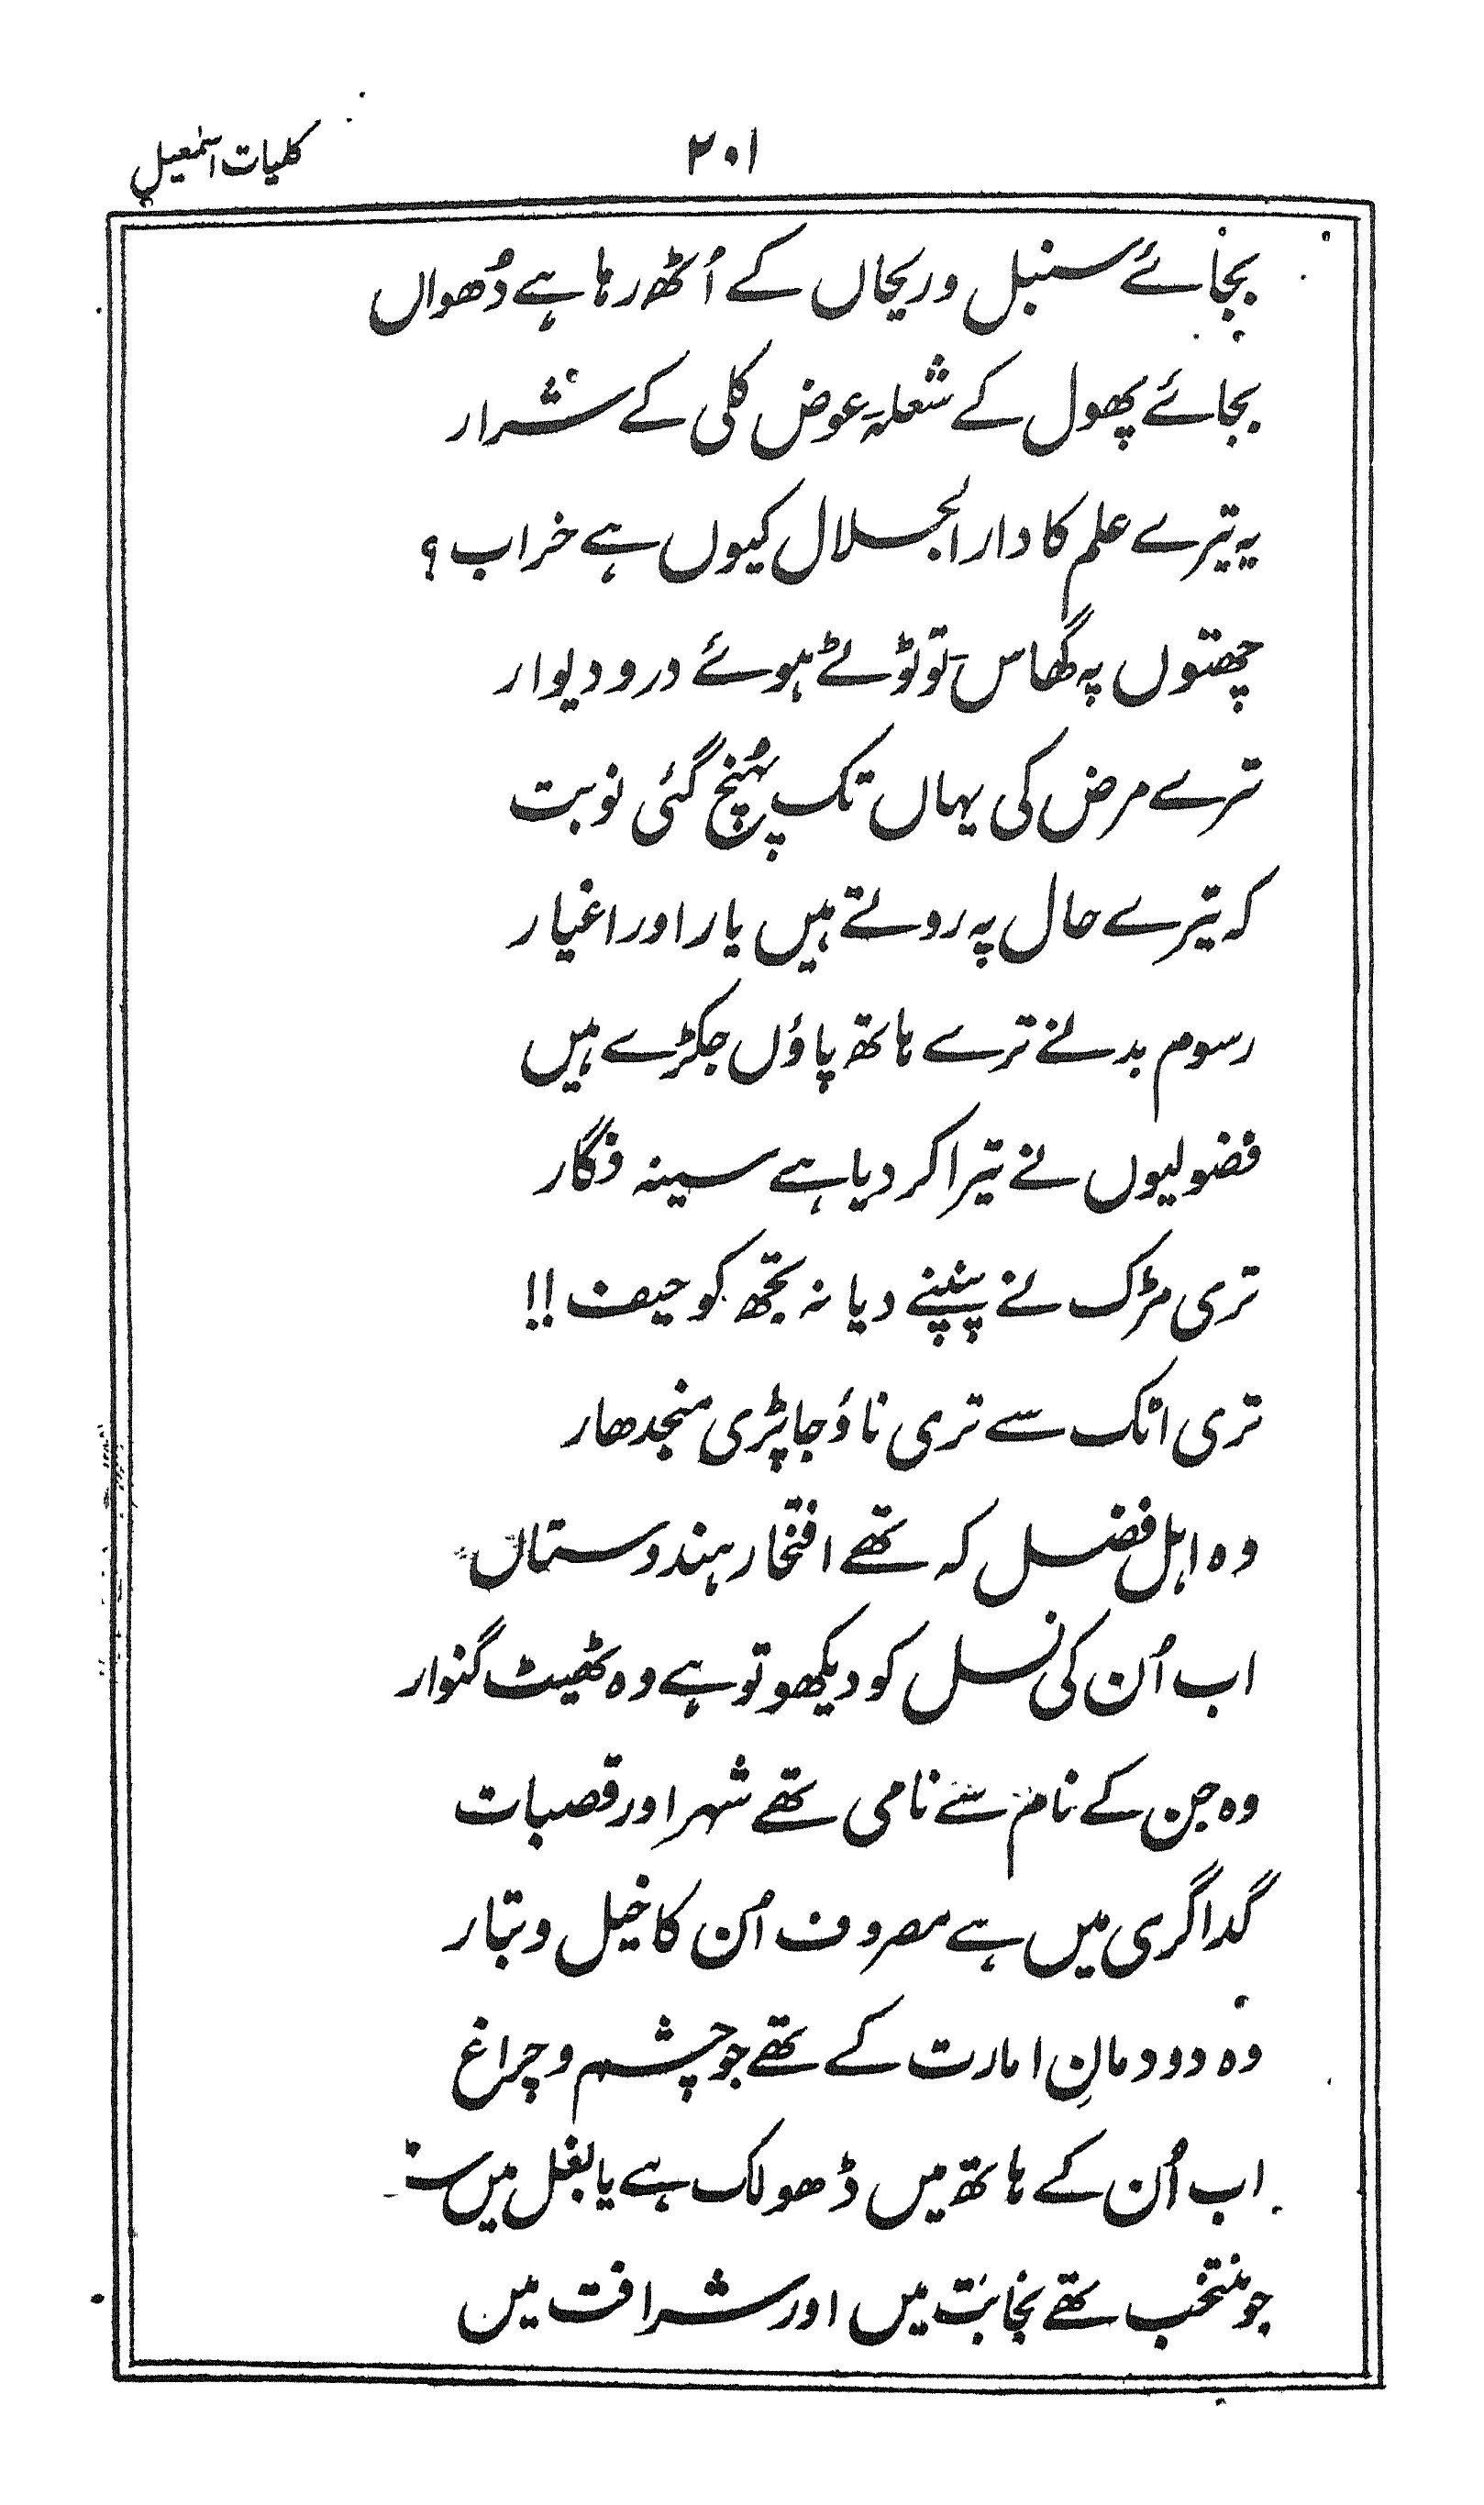 ۲۰۱
کلیات اسمٰعیل
بجائے سنبل و ریحاں کے اُٹھ رہا ہے دُھواں
بجائے پھول کے شعلہ عوض کلی کے شرار
یہ تیرے علم کا دار الجلال کیوں ہے خراب؟
چھتوں پہ گھاس تو ٹوٹے ہوئے در و دیوار
ترے مرض کی یہاں تک پہُنچ گئی نوبت
کہ تیرے حال پہ روتے ہیں یار اور اغیار
رسوم بد نے ترے ہاتھ پاؤں جکڑے ہیں
فضولیوں نے تیرا کر دیا ہے سینہ فگار
تری مڑک نے پنپنے دیا نہ تجھ کو حیف!!
تری اٹک سے تری ناؤ جا پڑی منجدھار
وہ اہل فضل کہ تھے افتخار ہندوستاں
اب اُن کی نسل کو دیکھو تو ہے وہ ٹھیٹ گنوار
وہ جن کے نام سے نامی تھے شہر اور قصبات
گداگری میں ہے مصروف اُن کا خیل و تبار
وہ دودمانِ امارت کے تھے جو چشم و چراغ
اب اُن کے ہاتھ میں ڈھولک ہے یا بغل میں
جو منتخب تھے نجابت میں اور شرافت میں